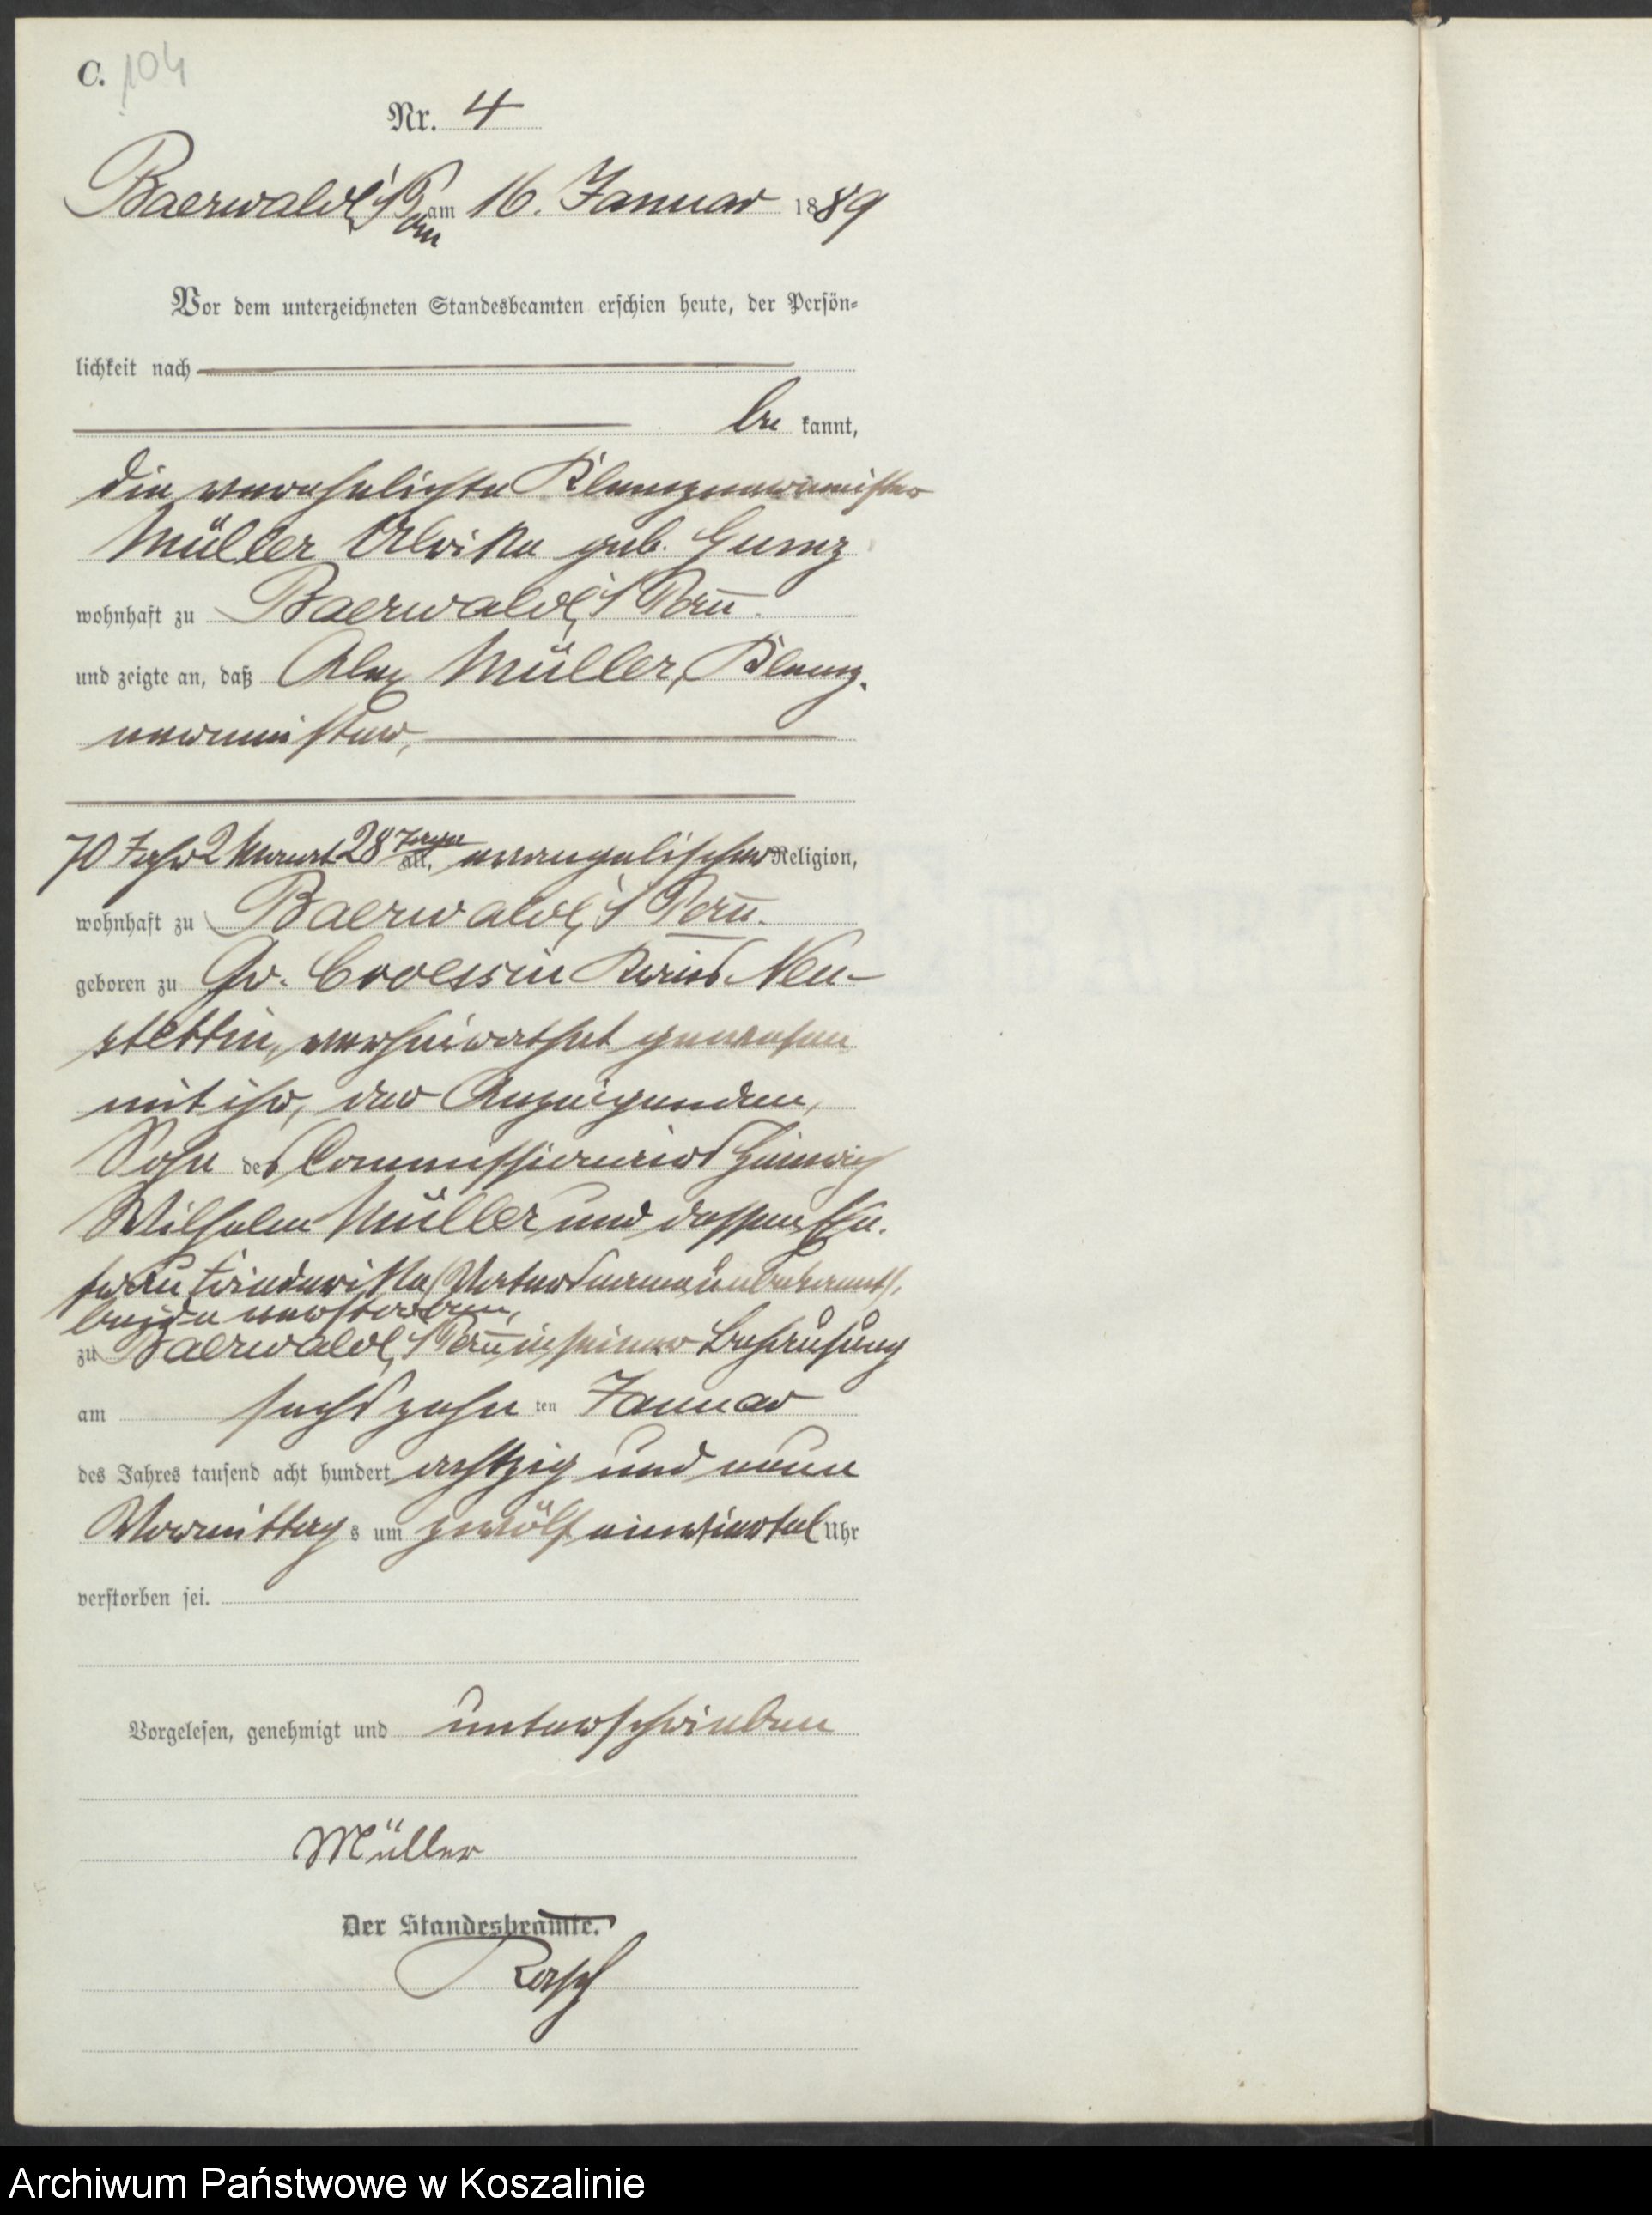 C. 104
Nr. 4
Baerwald i/Pom am 16. Januar 1889
Vor dem unterzeichneten Standesbeamten erschien heute, der Persön-
lichkeit nach
be kannt,
die verehelichte Klempnermeister
Müller Ulrike geb. Gumz
wohnhaft zu Baerwald i/Pom.
und zeigte an, daß Müller, Klemp-
nermeister,
70 Jahr 2 Monat 28 Tage alt, evangelischer Religion,
wohnhaft zu Baerwald i/Pom.
geboren zu Gr. Croessin Kreis Neu-
stettin, verheirathet gewesen
mit ihr, der Anzeigenden,
Sohn des Commissionairs Heinrich
Wilhelm Müller und dessen Ehe-
frau Friederike (Vatersname unbekannt),
beide verstorben,
zu Baerwald i/Pom in seiner Behausung
am sechszehn ten Januar
des Jahres tausend acht hundert achtzig und neun
Vormittag s um zwölf einviertel Uhr
verstorben sei.
Vorgelesen, genehmigt und unterschrieben
Müller
Der Standesbeamte.
Archiwum Państwowe w Koszalinie